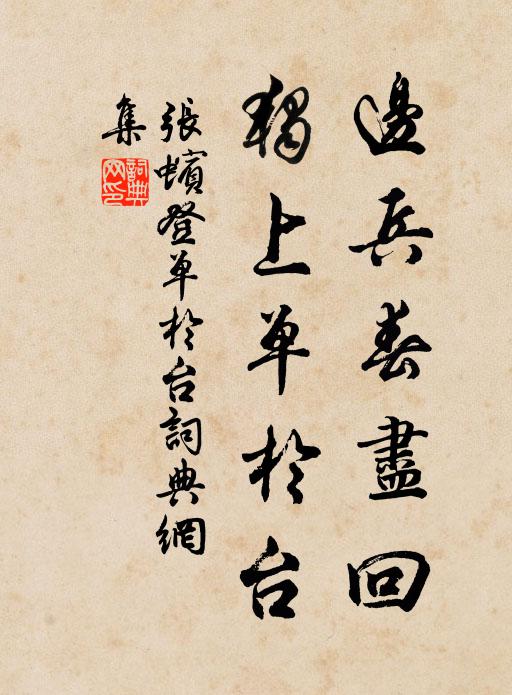 邊兵春盡回
獨上單於台
張蠙登單於台詞典網
集
詞典
网印